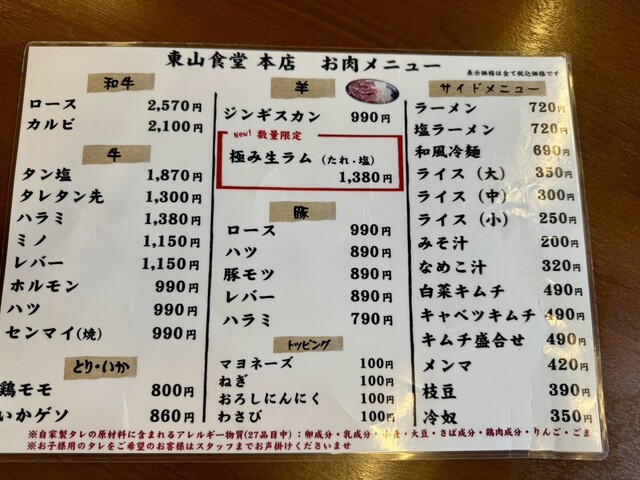 東山食堂 本店 お肉メニュー
表示価格は全て税込価格です
和牛
ロース 2,570円
カルビ 2,100円
牛
タン塩 1,870円
タレタン先 1,300円
ハラミ 1,380円
ミノ 1,150円
レバー 1,150円
ホルモン 990円
ハツ 990円
センマイ(焼) 990円
とり・いか
鶏モモ 800円
いかゲソ 860円
羊
ジンギスカン 990円
New! 数量限定
極み生ラム (たれ・塩)
1,380円
豚
ロース 990円
ハツ 890円
豚モツ 890円
レバー 890円
ハラミ 790円
トッピング
マヨネーズ 100円
ねぎ 100円
おろしにんにく 100円
わさび 100円
サイドメニュー
ラーメン 720円
塩ラーメン 720円
和風冷麺 690円
ライス(大) 350円
ライス(中) 300円
ライス(小) 250円
みそ汁 200円
なめこ汁 320円
白菜キムチ 490円
キャベツキムチ 490円
キムチ盛合せ 490円
メンマ 420円
枝豆 390円
冷奴 350円
※自家製タレの原材料に含まれるアレルギー物質(27品目中):卵成分・乳成分・小麦・大豆・さば成分・鶏肉成分・りんご・ごま
※お子様用のタレをご希望のお客様はスタッフまでお声掛けくださいませ